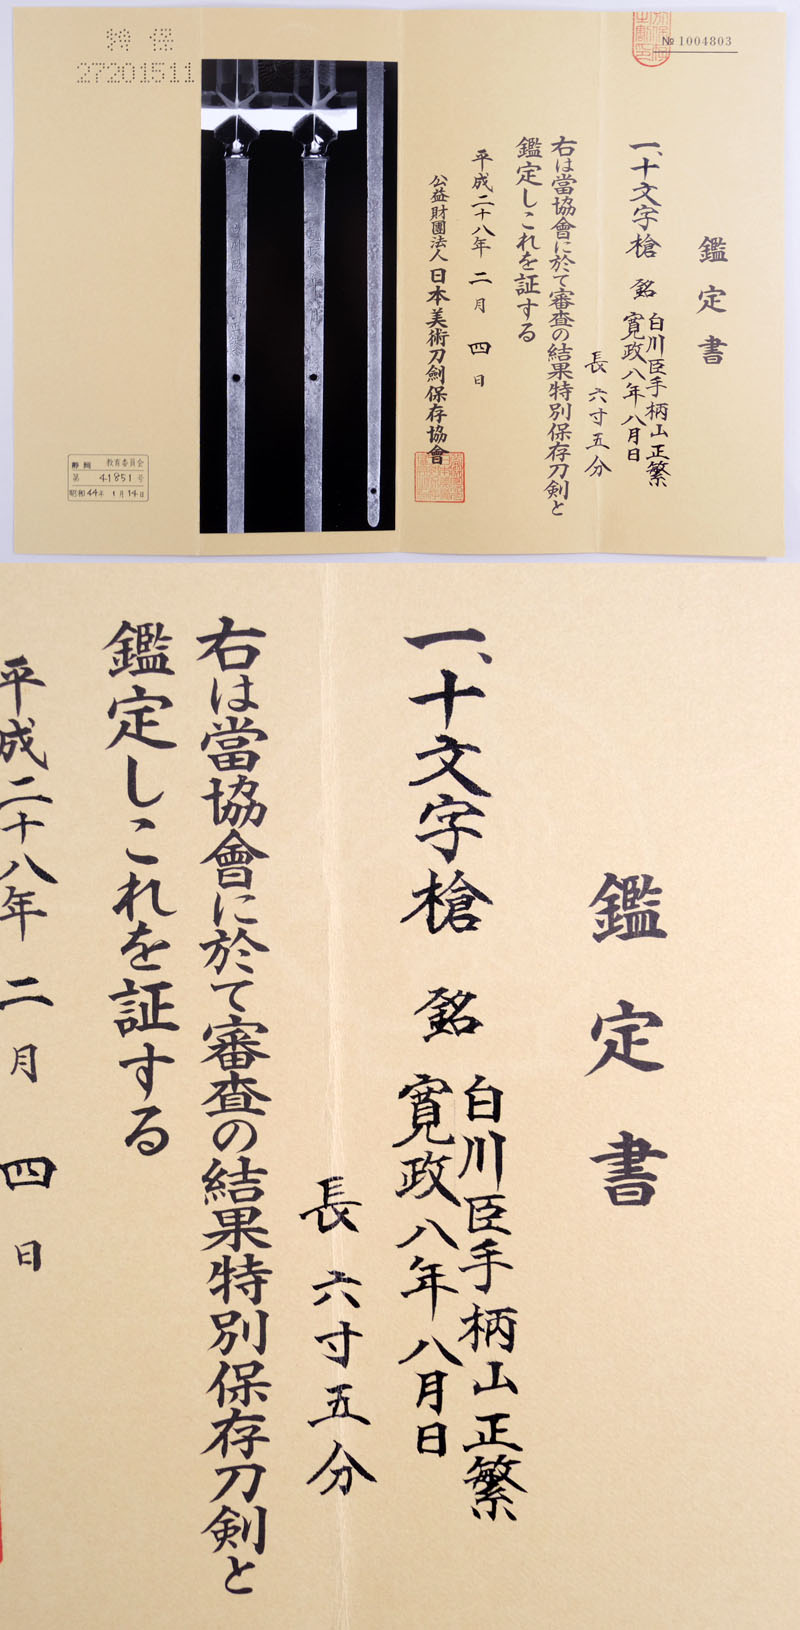 特 保
27201511
№ 1004803
鑑定書
一、十文字槍 銘 白川臣手柄山正繁
寛政八年八月日
長 六寸五分
右は當協會に於て審査の結果特別保存刀剣と
鑑定しこれを証する
平成二十八年 二月 四日
公益財團法人 日本美術刀劍保存協會
静岡 教育委員会
第 41851 号
昭和44年 1月14日
鑑定書
一、十文字槍 銘 白川臣手柄山正繁
寛政八年八月日
長 六寸五分
右は當協會に於て審査の結果特別保存刀剣と
鑑定しこれを証する
平成二十八年 二月 四日